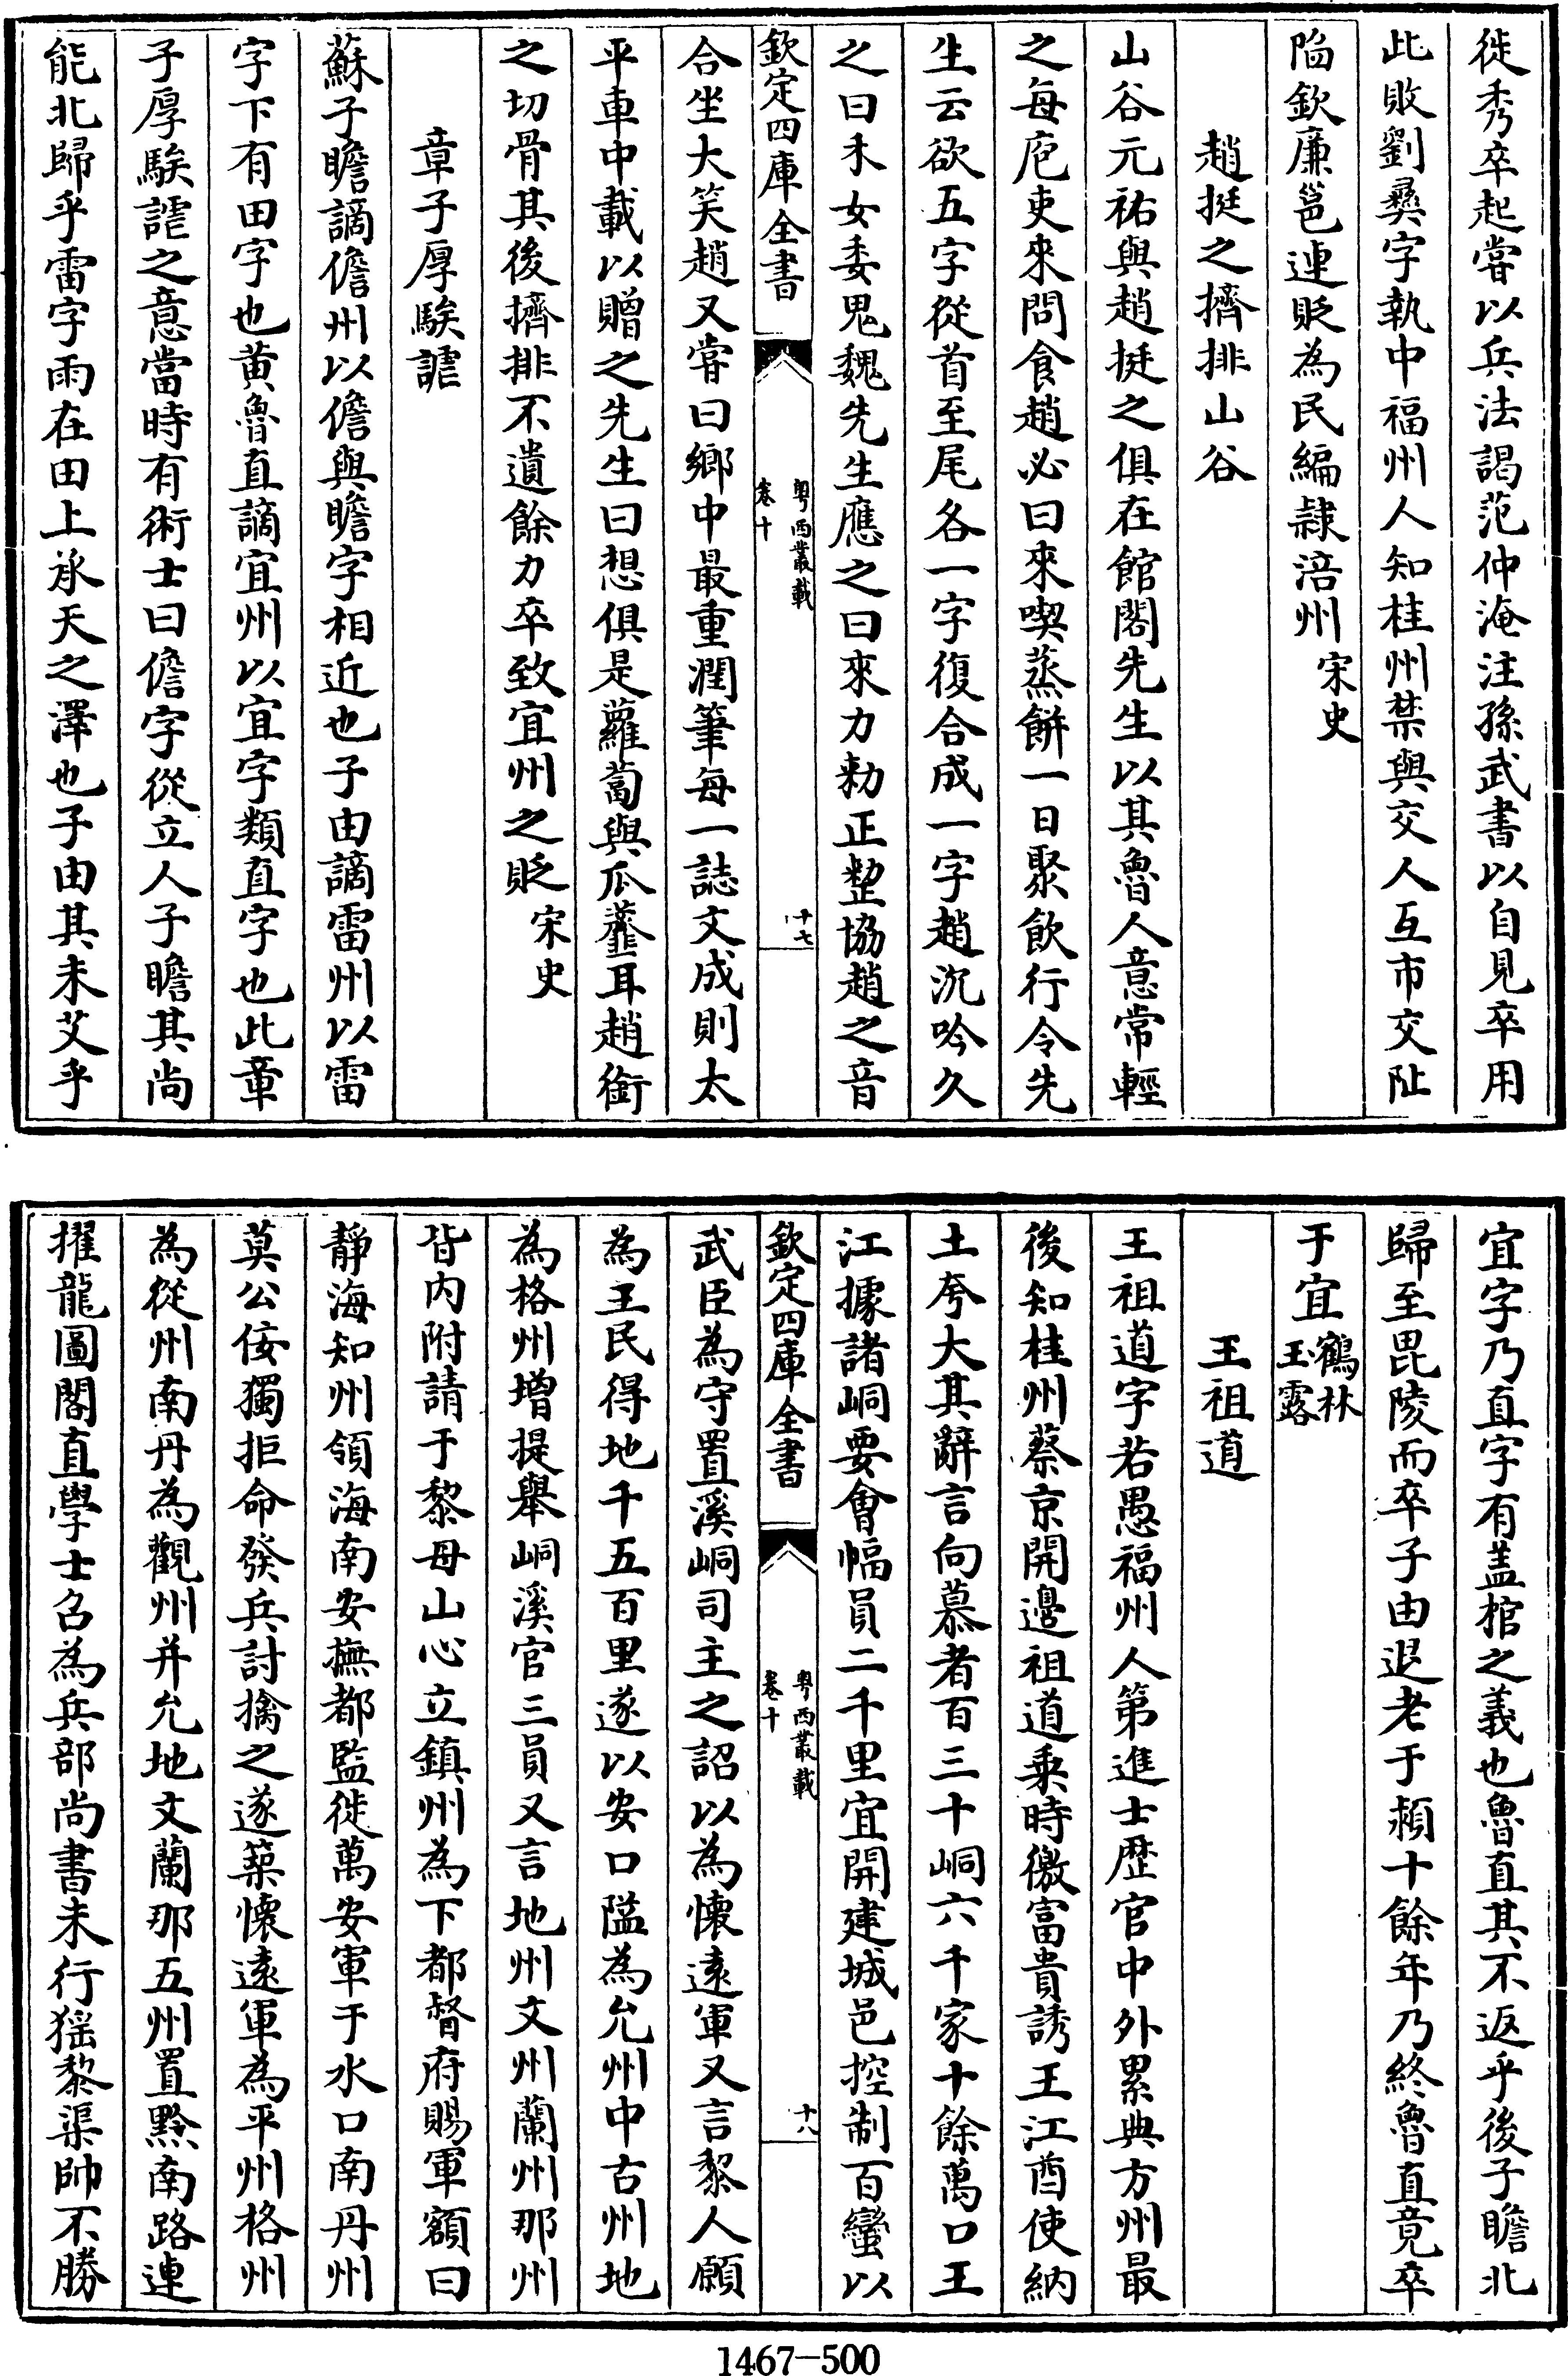 徙秀卒起嘗以兵法謁范仲淹注孫武書以自見卒用
此敗劉彞字執中福州人知桂州禁與交人互市交阯
陷欽廉邕連貶為民編隷涪州宋史
趙挺之擠排山谷
山谷元祐與趙挺之俱在館閣先生以其魯人意常輕
之每庖吏來問食趙必曰來喫蒸餅一日聚飲行令先
生云欲五字從首至尾各一字復合成一字趙沉吟久
之曰禾女委鬼魏先生應之曰來力勑正整協趙之音
欽定四庫全書
粤西叢載
卷十
十七
合坐大笑趙又嘗曰鄉中最重潤筆每一誌文成則太
平車中載以贈之先生曰想俱是蘿蔔與瓜虀耳趙銜
之切骨其後擠排不遺餘力卒致宜州之貶宋史
章子厚騃謔
蘇子瞻謫儋州以儋與瞻字相近也子由謫雷州以雷
字下有田字也黄魯直謫宜州以宜字類直字也此章
子厚騃謔之意當時有術士曰儋字從立人子瞻其尚
能北歸乎雷字雨在田上承天之澤也子由其未艾乎
宜字乃直字有盖棺之義也魯直其不返乎後子瞻北
歸至毘陵而卒子由退老于頻十餘年乃終魯直竟卒
于宜鶴林
玉露
王祖道
王祖道字若愚福州人第進士歴官中外累典方州最
後知桂州蔡京開邊祖道乗時徼富貴誘王江酋使納
土夸大其辭言向慕者百三十峒六千家十餘萬口王
江據諸峒要會幅員二千里宜開建城邑控制百蠻以
欽定四庫全書
粤西叢載
卷十
十八
武臣為守置溪峒司主之詔以為懷遠軍又言黎人願
為王民得地千五百里遂以安口隘為允州中古州地
為格州增提舉峒溪官三員又言地州文州蘭州那州
皆内附請于黎母山心立鎮州為下都督府賜軍額曰
靜海知州領海南安撫都監徙萬安軍于水口南丹州
莫公佞獨拒命發兵討擒之遂築懷遠軍為平州格州
為從州南丹為觀州并允地文蘭那五州置黔南路連
擢龍圖閣直學士召為兵部尚書未行猺黎渠帥不勝
1467-500